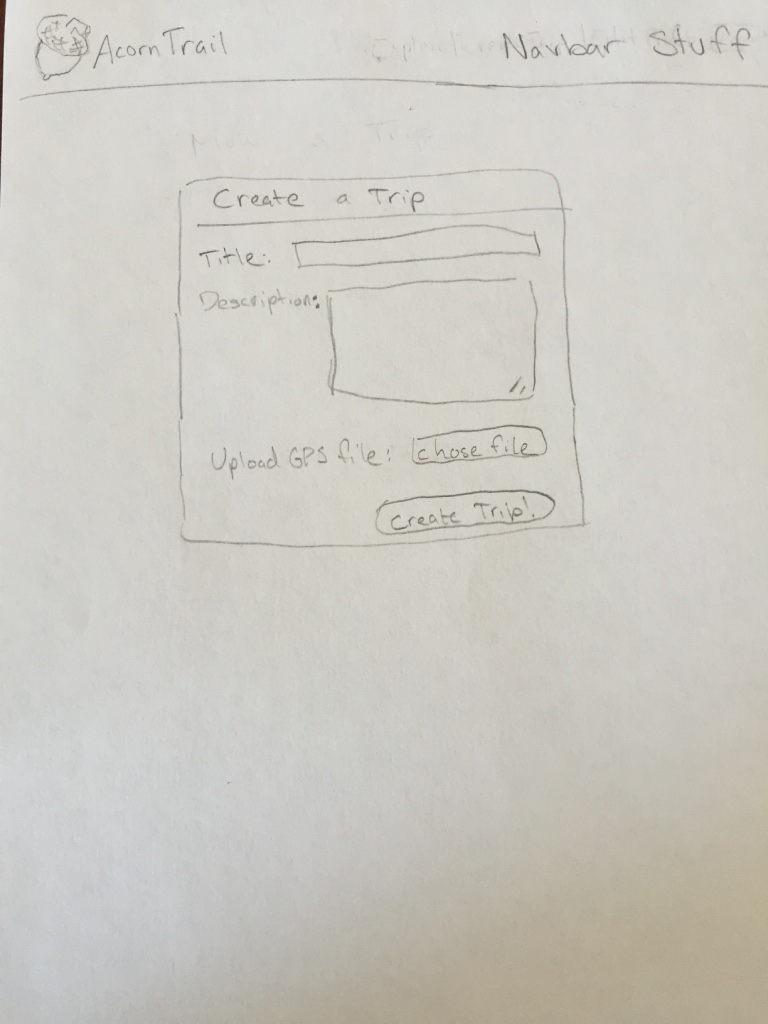 AcornTrail Navbar Stuff
Create a Trip
Title:
Description:
Upload GPS file: chose file
Create Trip!